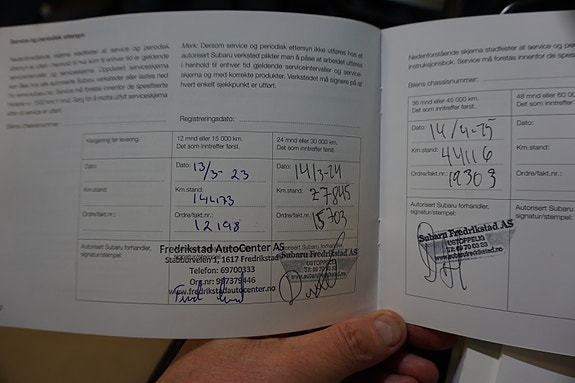 Service og periodisk ettersyn
Nedenforstående skjema stadfester at service og periodisk
ettersyn er utført i henhold til hva som til enhver tid er gjeldende
Bilens chassisnummer:
Merk: Dersom service og periodisk ettersyn ikke utføres hos et
autorisert Subaru verksted plikter man å påse at arbeidet utføres
i henhold til enhver tid gjeldende serviceintervaller og service-
skjema og med korrekte produkter. Verkstedet må signere på at
hvert enkelt sjekkpunkt er utført.
Registreringsdato:
Klargjøring før levering:
Dato:
Km.stand:
Ordre/fakt.nr.:
Autorisert Subaru forhandler,
signatur/stempel:
12 mnd eller 15 000 km.
Det som inntreffer først.
Dato: 13/3-23
Km.stand:
14473
Ordre/fakt.nr.:
12198
Fredrikstad AutoCenter AS
Stabburveien 1, 1617 Fredrikstad
Telefon: 69700333
Org.nr: 997379446
www.fredrikstadautocenter.no
24 mnd eller 30 000 km.
Det som inntreffer først.
Dato: 14/3-24
Km.stand:
27845
Ordre/fakt.nr.:
15703
Subaru Fredrikstad AS
www.subarufredrikstad.no
Nedenforstående skjema stadfester at service og
instruksjonsbok. Service må foretas innenfor de spesi
Bilens chassisnummer:
36 mnd eller 45 000 km.
Det som inntreffer først.
Dato:
14/4-25
Km.stand:
44116
Ordre/fakt.nr.:
19303
Autorisert Subaru forhandler,
signatur/stempel:
Subaru Fredrikstad AS
www.subarufredrikstad.no
48 mnd eller 60
Det som inntreffer
Dato:
Km.stand:
Ordre/fakt.nr.:
Autorisert Subaru
signatur/stempel: